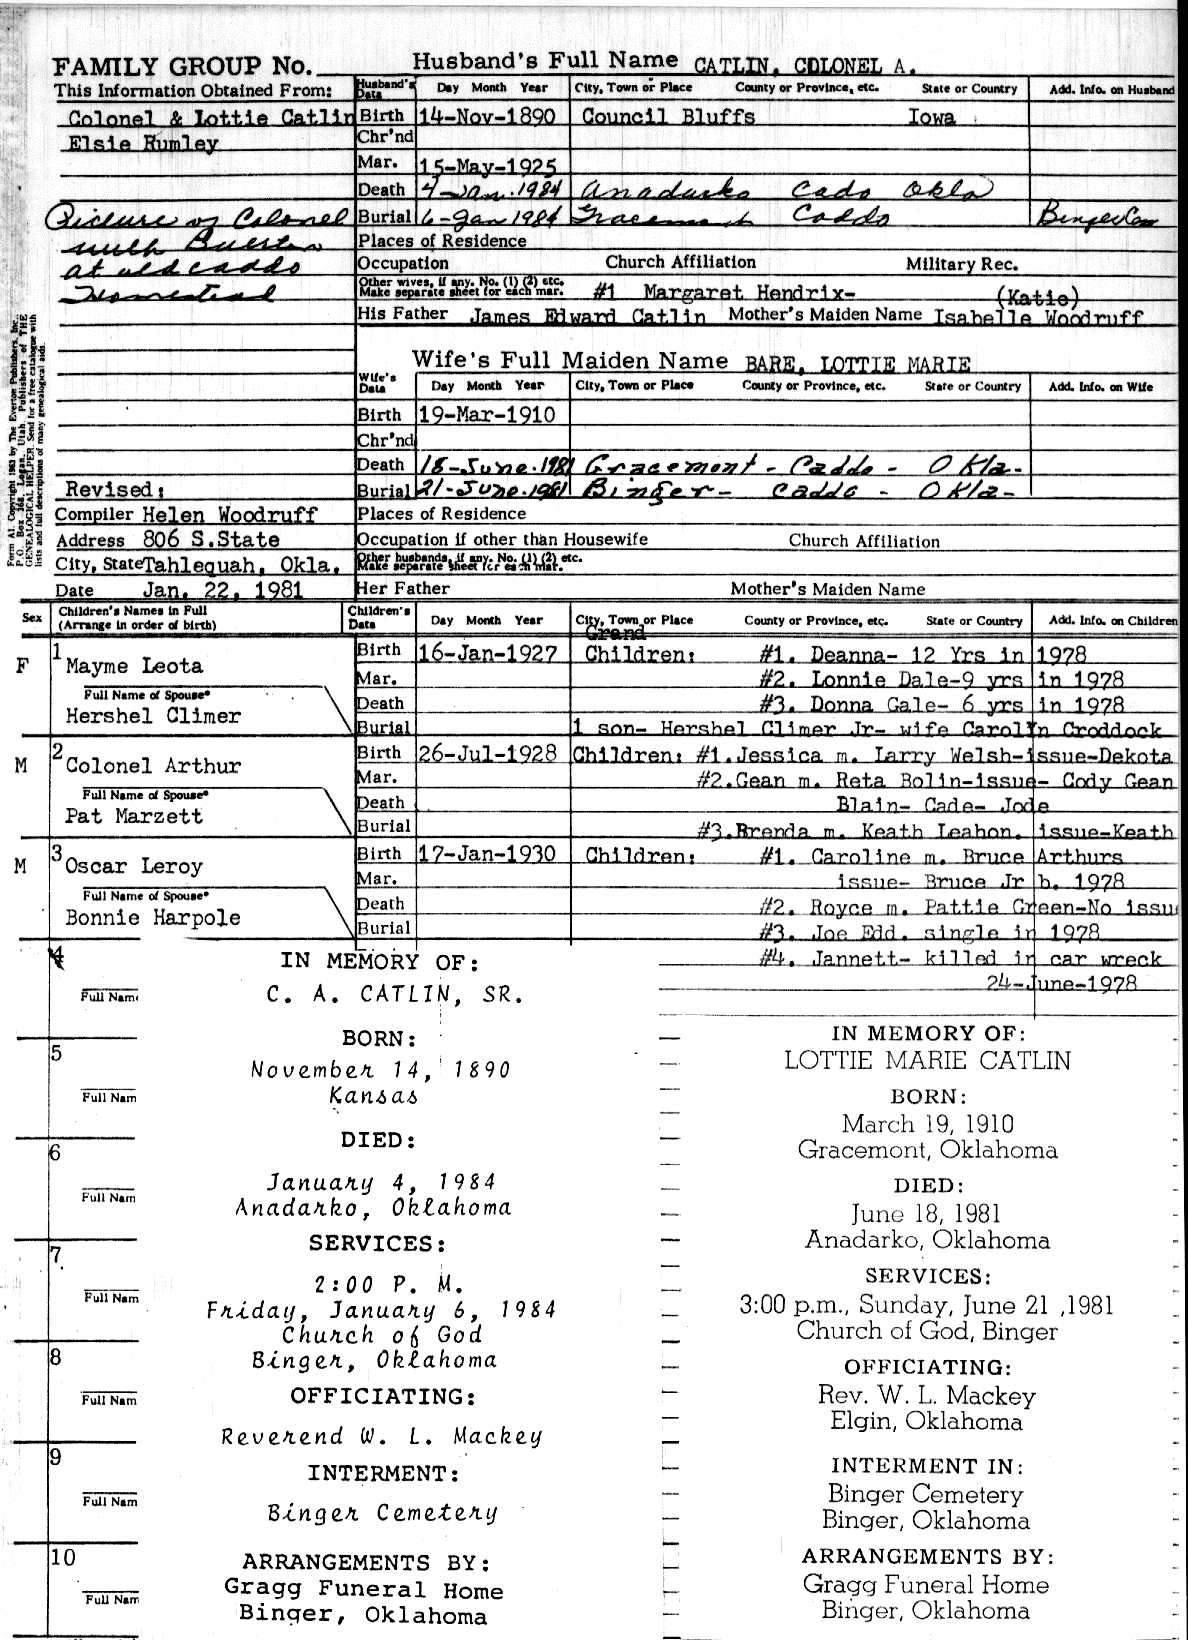 FAMILY GROUP No.
Husband's Full Name CATLIN, COLONEL A.
This Information Obtained From:
Husband's Data Day Month Year City, Town or Place County or Province, etc. State or Country Add. Info. on Husband
Colonel & Lottie Catlin
Birth 14-Nov-1890 Council Bluffs Iowa
Elsie Rumley
Chr'nd
Mar. 15-May-1925
Death 4-Jan.1984 Anadarko Cado Okla
Picture of Colonel
Burial 6-Jan 1984 Gracemont Caddo Binger Cem
with
Places of Residence
at old caddo
Occupation Church Affiliation Military Rec.
Homestead
Other wives, if any. No. (1) (2) etc.
Make separate sheet for each mar. #1 Margaret Hendrix- (Katie)
His Father James Edward Catlin Mother's Maiden Name Isabelle Woodruff
Form A1. Copyright 1963 by The Everton Publishers, Inc.,
P.O. Box 368, Logan, Utah. Publishers of THE
GENEALOGICAL HELPER. Send for a free catalogue with
lists and full descriptions of many genealogical aids.
Wife's Full Maiden Name BARE, LOTTIE MARIE
Wife's Data Day Month Year City, Town or Place County or Province, etc. State or Country Add. Info. on Wife
Birth 19-Mar-1910
Chr'nd
Death 18-June.1981 Gracemont - Caddo - Okla-
Revised:
Burial 21-June.1981 Binger- Caddo - Okla-
Compiler Helen Woodruff
Places of Residence
Address 806 S.State
Occupation if other than Housewife Church Affiliation
City, State Tahlequah, Okla.
Other husbands, if any. No. (1) (2) etc.
Make separate sheet for each mar.
Date Jan. 22, 1981
Her Father Mother's Maiden Name
Sex Children's Names in Full
(Arrange in order of birth)
Children's Data Day Month Year City, Town or Place County or Province, etc. State or Country Add. Info. on Children
Grand
F 1 Mayme Leota
Birth 16-Jan-1927 Children: #1. Deanna- 12 Yrs in 1978
Mar. #2. Lonnie Dale-9 yrs in 1978
Full Name of Spouse*
Death #3. Donna Gale- 6 yrs in 1978
Hershel Climer
Burial 1 son- Hershel Climer Jr- wife Carolyn Croddock
M 2 Colonel Arthur
Birth 26-Jul-1928 Children: #1.Jessica m. Larry Welsh-issue-Dekota
Mar. #2.Gean m. Reta Bolin-issue- Cody Gean
Full Name of Spouse*
Death Blain- Cade- Jode
Pat Marzett
Burial #3.Brenda m. Keath Leahon. issue-Keath
M 3 Oscar Leroy
Birth 17-Jan-1930 Children: #1. Caroline m. Bruce Arthurs
Mar. issue- Bruce Jr b. 1978
Full Name of Spouse*
Death #2. Royce m. Pattie Green-No issu
Bonnie Harpole
Burial #3. Joe Edd. single in 1978
#4. Jannett- killed in car wreck
24-June-1978
4
Full Nam
5
Full Nam
6
Full Nam
7
Full Nam
8
Full Nam
9
Full Nam
10
Full Nam
IN MEMORY OF:
C. A. CATLIN, SR.
BORN:
November 14, 1890
Kansas
DIED:
January 4, 1984
Anadarko, Oklahoma
SERVICES:
2:00 P. M.
Friday, January 6, 1984
Church of God
Binger, Oklahoma
OFFICIATING:
Reverend W. L. Mackey
INTERMENT:
Binger Cemetery
ARRANGEMENTS BY:
Gragg Funeral Home
Binger, Oklahoma
IN MEMORY OF:
LOTTIE MARIE CATLIN
BORN:
March 19, 1910
Gracemont, Oklahoma
DIED:
June 18, 1981
Anadarko, Oklahoma
SERVICES:
3:00 p.m., Sunday, June 21 ,1981
Church of God, Binger
OFFICIATING:
Rev. W. L. Mackey
Elgin, Oklahoma
INTERMENT IN:
Binger Cemetery
Binger, Oklahoma
ARRANGEMENTS BY:
Gragg Funeral Home
Binger, Oklahoma